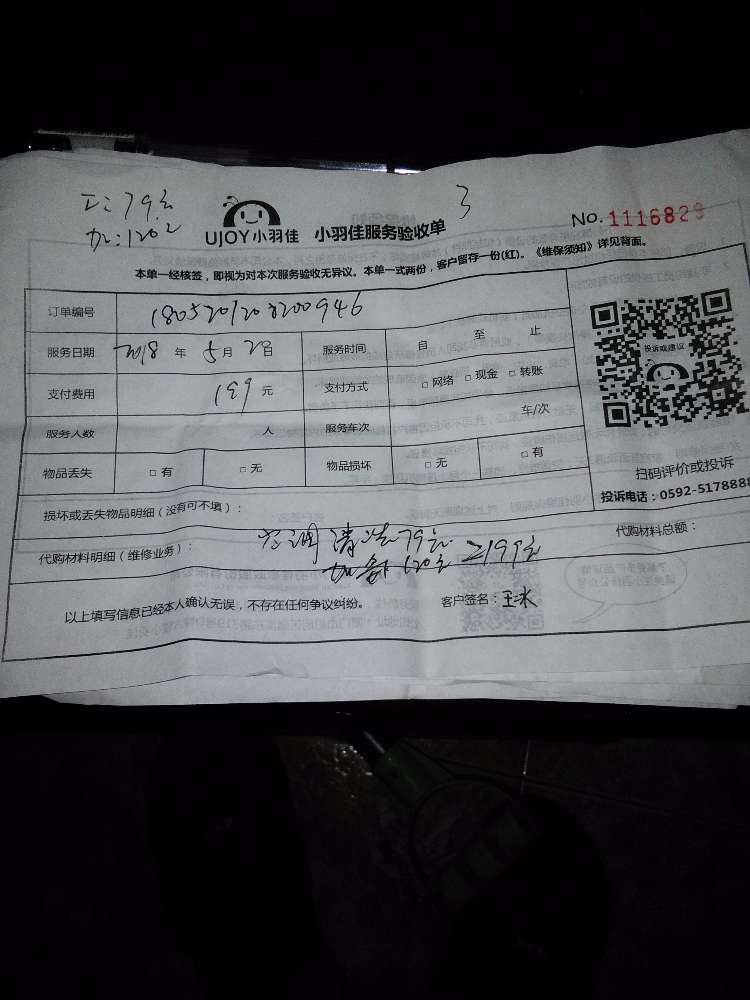 工:79元
加:120元
3
UJOY小羽佳 小羽佳服务验收单 No.1116829
本单一经核签，即视为对本次服务验收无异议。本单一式两份，客户留存一份(红)。《维保须知》详见背面。
订单编号
服务日期 2018 年 5 月 2 日 服务时间 自 至 止
支付费用 199 元 支付方式 □ 网络 □ 现金 □ 转账
服务人数 人 服务车次 车/次
物品丢失 □ 有 □ 无 物品损坏 □ 无 □ 有
投诉或建议
扫码评价或投诉
投诉电话：0592-5178888
损坏或丢失物品明细（没有可不填）：
代购材料明细（维修业务）： 空调清洗79元 代购材料总额：
120元 199元
以上填写信息已经本人确认无误，不存在任何争议纠纷。 客户签名：